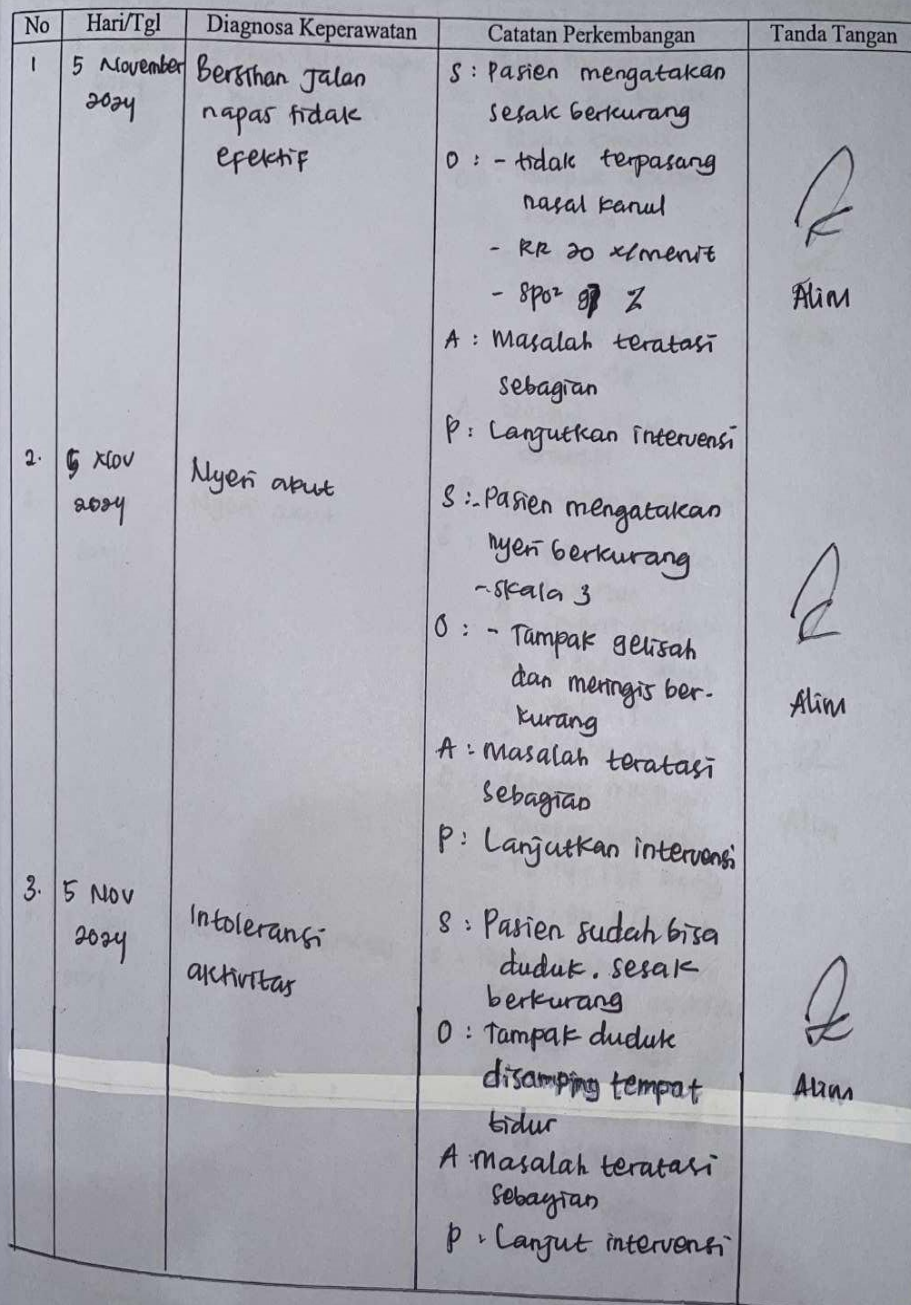 No Hari/Tgl Diagnosa Keperawatan Catatan Perkembangan Tanda Tangan
1 5 November 2024
Bersihan Jalan
napas tidak
efektif
S : Pasien mengatakan
sesak berkurang
O : - tidak terpasang
nasal kanul
- RR 20 x/menit
- Spo2 %
A : Masalah teratasi
sebagian
P : Lanjutkan intervensi
Alim
2. 5 Nov
2024
Nyeri akut
S : - Pasien mengatakan
nyeri berkurang
- Skala 3
O : - Tampak gelisah
dan meringis ber-
kurang
A : Masalah teratasi
sebagian
P : Lanjutkan intervensi
Alim
3. 5 Nov
2024
Intoleransi
aktivitas
S : Pasien sudah bisa
duduk. sesak
berkurang
O : Tampak duduk
disamping tempat
tidur
A : masalah teratasi
sebagian
P : Lanjut intervensi
Alim